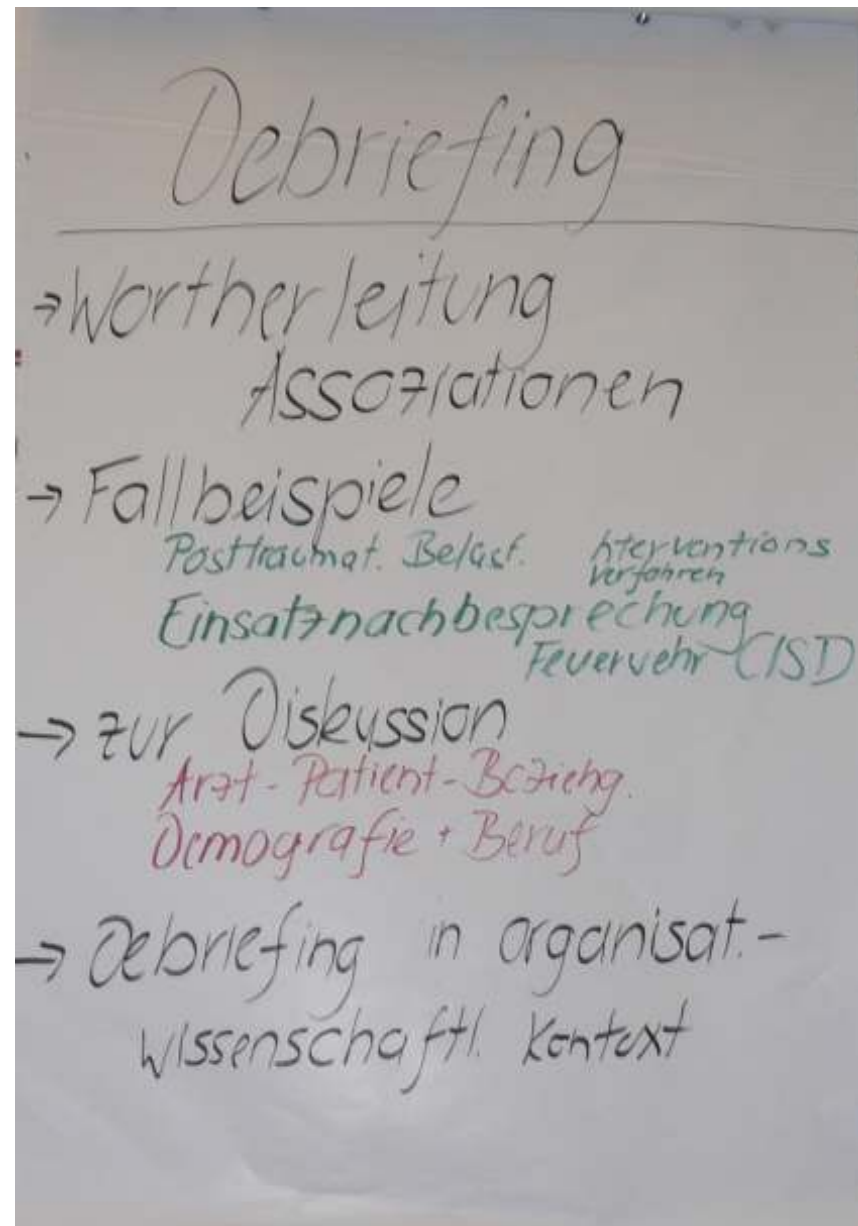 Debriefing
→ Wortherleitung
Assoziationen
→ Fallbeispiele
Posttraumat. Belast. Interventions
verfahren
Einsatznachbesprechung
Feuerwehr CISD
→ zur Diskussion
Arzt-Patient-Beziehg.
Demografie + Beruf
→ Debriefing in organisat.-
wissenschaftl. Kontext